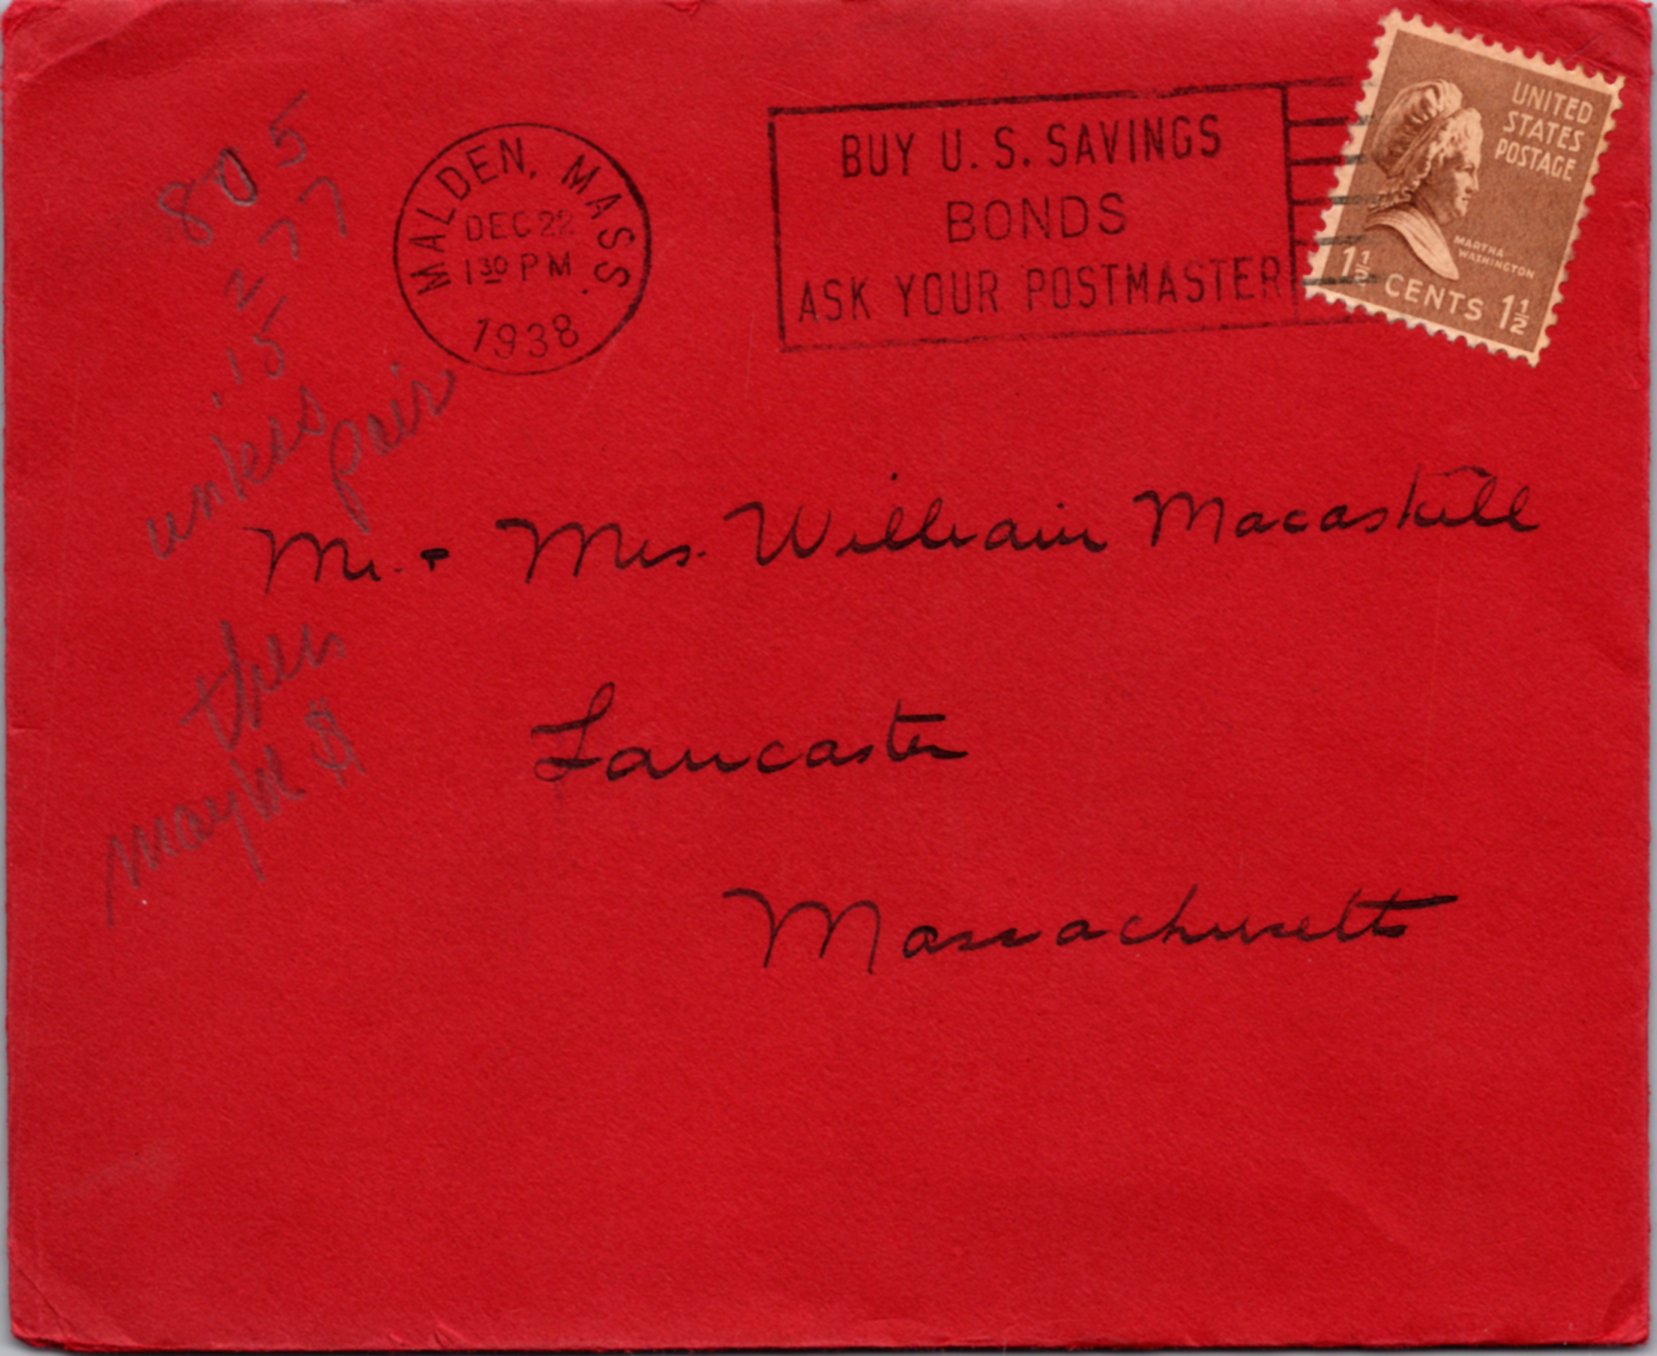 MALDEN, MASS.
DEC 22
1 30 PM
1938
BUY U.S. SAVINGS
BONDS
ASK YOUR POSTMASTER
UNITED
STATES
POSTAGE
MARTHA
WASHINGTON
1½ CENTS 1½
805
277
15
unless
pair
Mr. & Mrs. William Macaskill
then
maybe
Lancaster
Massachusetts